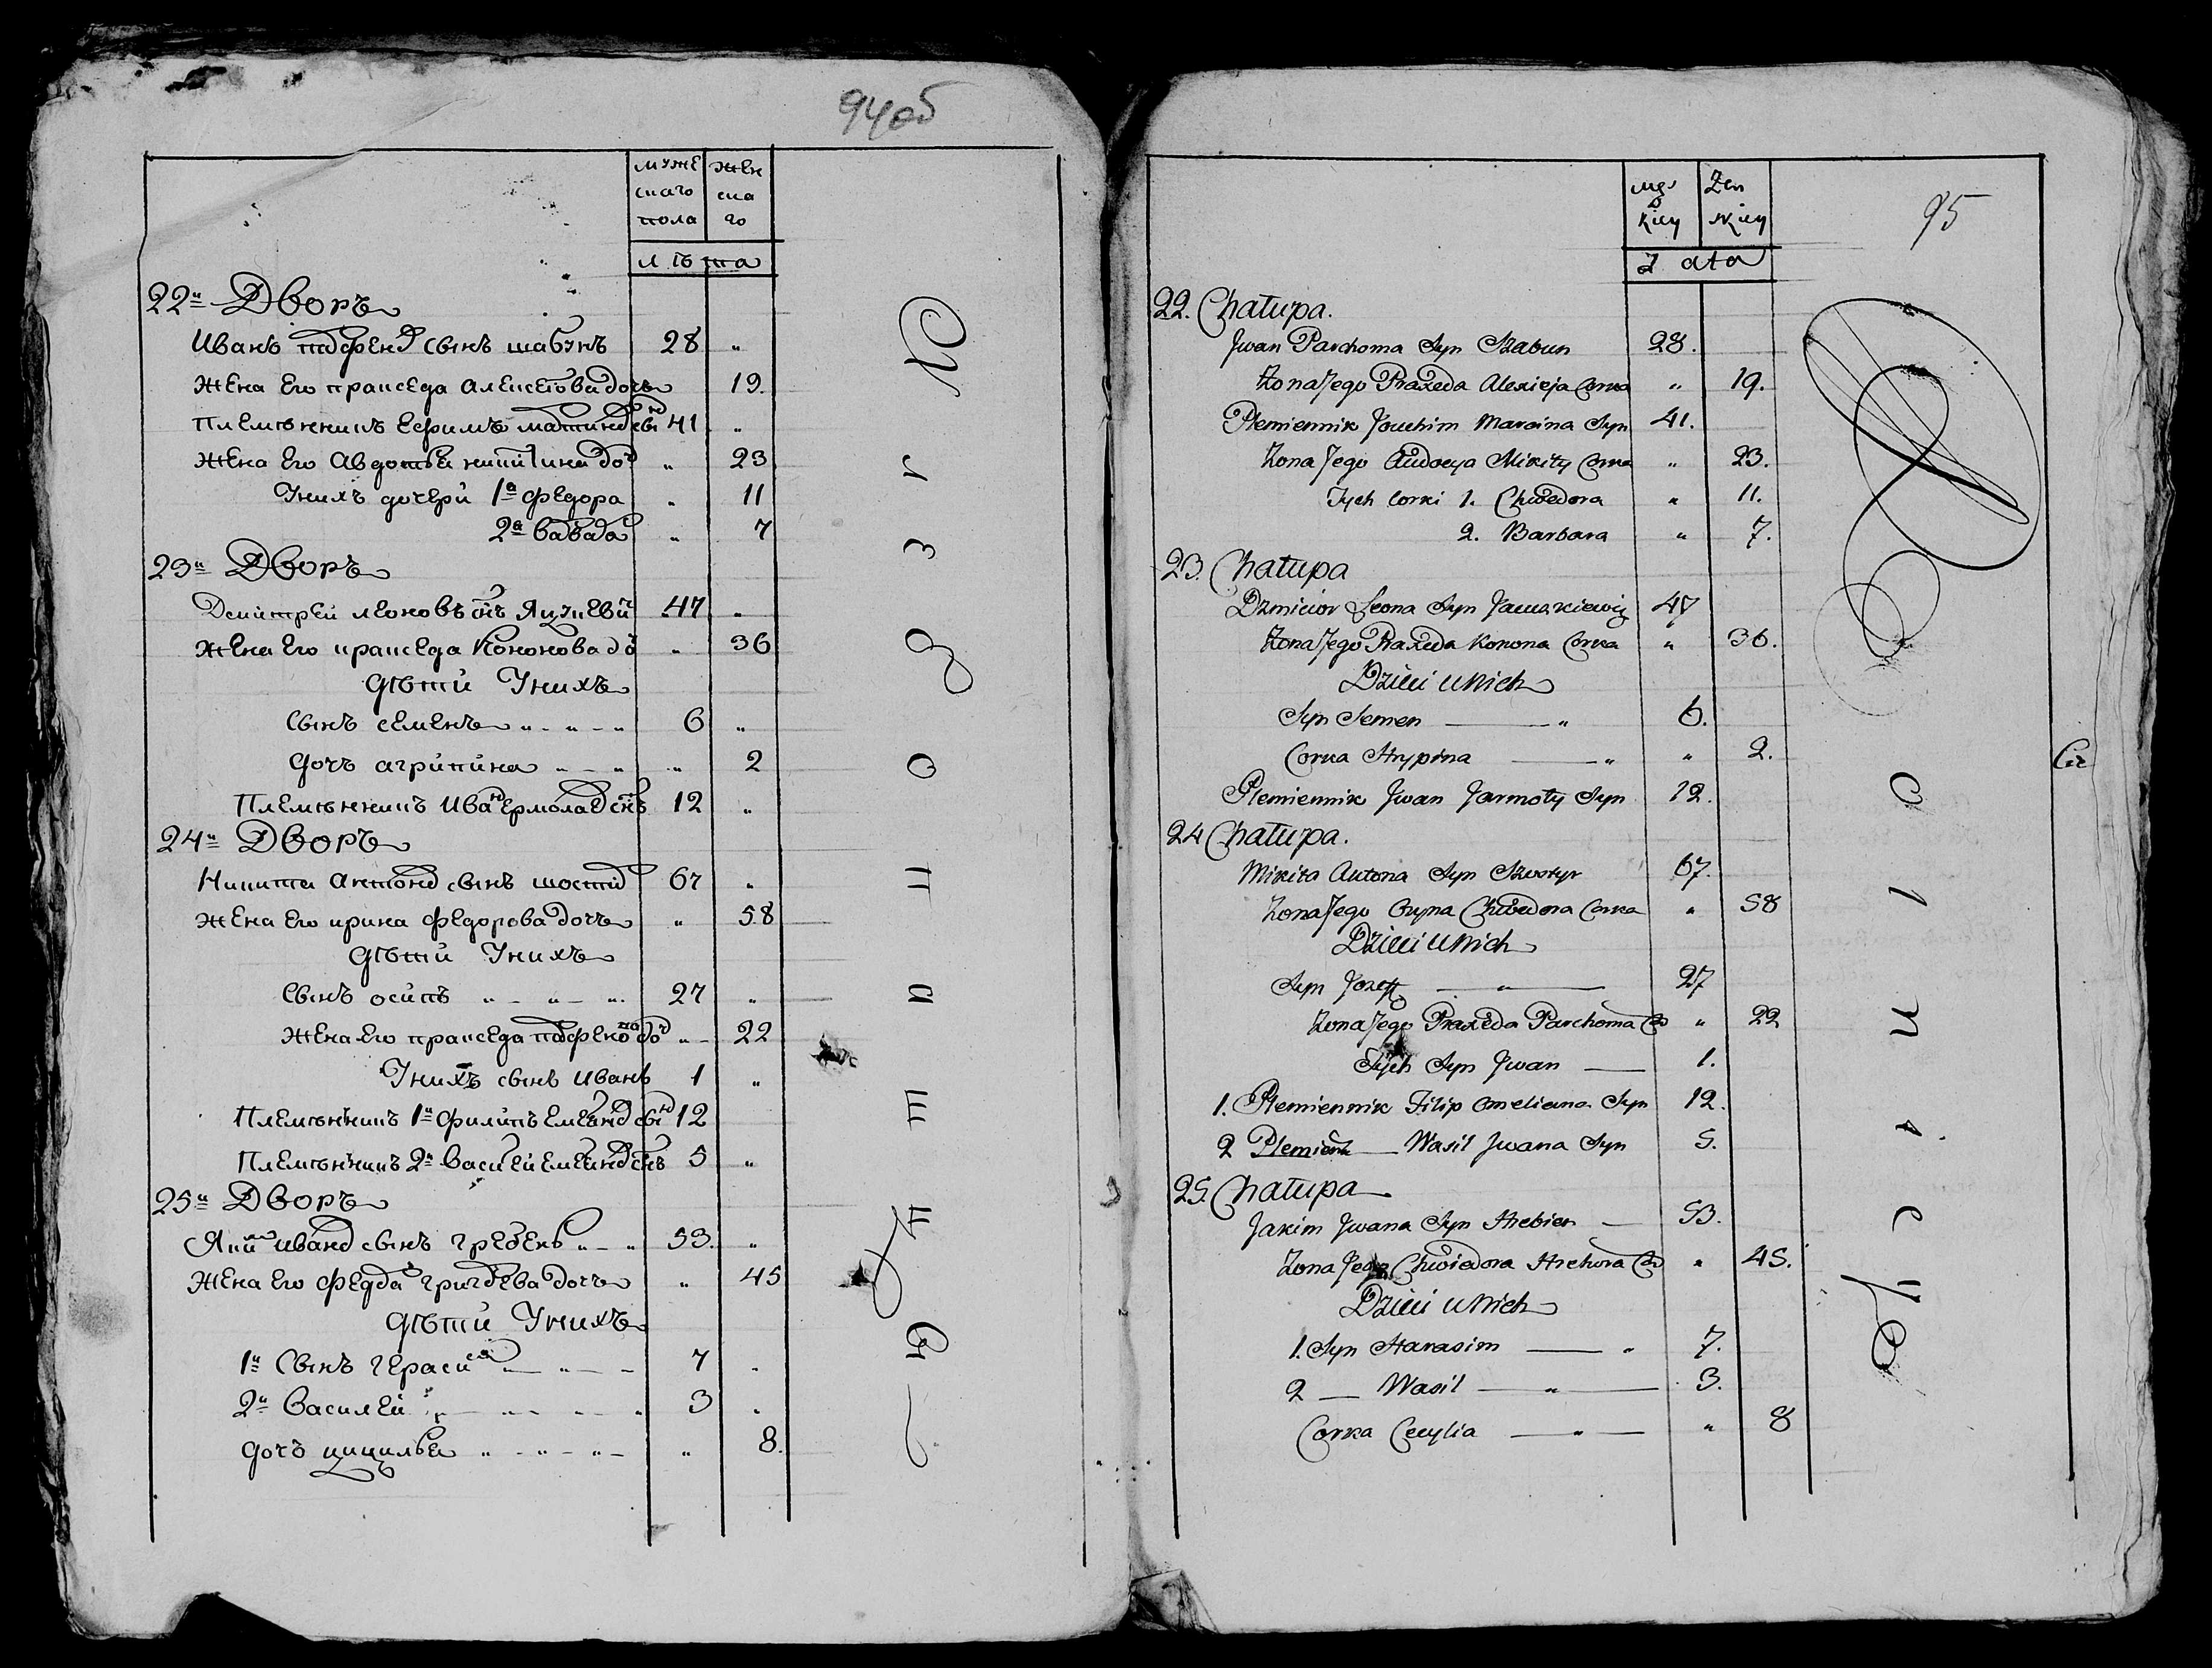 94 об
муже скаго пола
жен ска го
лѣта
22й Дворъ
Иванъ парфенов сынъ шабунъ 28 "
жена его праксѣда алексѣева дочь 19.
племѣнникъ Ефимъ мартинов сын 41 "
жена его авдотья никитина доч " 23
Унихъ дочери 1я федора " 11
2я варвара " 7
23й Дворъ
Демитрей леоновъ снъ Яцукевич 47 "
жена его праксѣда кононова до " 36
дѣти Унихъ
сынъ семенъ 6 "
дочъ агрипина " 2
племѣнникъ Иван Ермолаев снъ 12 "
24й Дворъ
Никита антонов сынъ 67 "
жена его ирина федорова дочь " 58
дѣти Унихъ
сынъ осипъ 27 "
жена его праксѣда парфенова доч " 22
Унихъ сынъ Иванъ 1 "
племѣнникъ 1й филипъ сын 12
племѣнникъ 2й василей снъ 5 "
25й Дворъ
Яким иванов сынъ гребень 53. "
жена его федора григорева дочь " 45
дѣти Унихъ
1й сынъ герасим 7 "
2й василей 3 "
дочъ цицилья " 8.
95
męs kiey
Zen skiey
Lata
22. Chałupa.
Jwan Parchoma Syn Szabun 28.
Zona Jego Praxeda Alexieja Corka " 19.
Plemiennik Jouchim Marcina Syn 41.
Zona Jego Audocya Mikity Corka " 23.
Tych Corki 1. Chwedora " 11.
2. Barbara " 7.
23. Chałupa
Dzmicior Leona Syn Jacuszkiewicz 47
Zona Jego Praxeda Konona Corka " 36.
Dzieci u Nich
Syn Semen " 6.
Corka Hrypina " " 2.
Plemiennik Jwan Jarmoły Syn 12.
24 Chałupa.
Mikita Antona Syn 67.
Zona Jego Oryna Chwedora Corka " 58
Dzieci u Nich
Syn Jozeff " 27
Zona Jego Praxeda Parchoma Co " 22
Tych Syn Jwan 1.
1. Plemiennik Filip Omeliana Syn 12.
2 Plemien Wasil Jwana Syn 5.
25. Chałupa
Jakim Jwana Syn Hrebien 53.
Zona Jego Chwiedora Hrehora Co " 45.
Dzieci u Nich
1. Syn Harasim " 7.
2 Wasil " 3.
Corka Cecylia " " 8